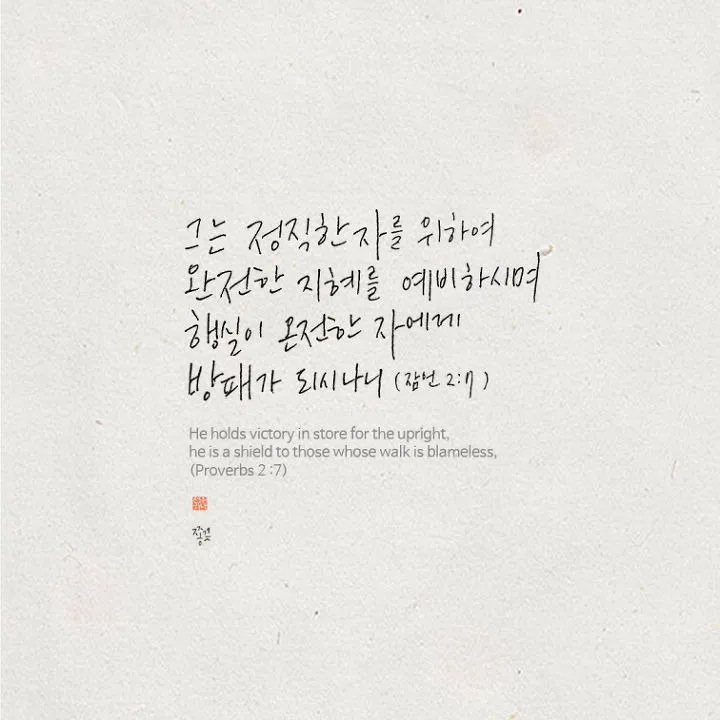 그는 정직한 자를 위하여
완전한 지혜를 예비하시며
행실이 온전한 자에게
방패가 되시나니 (잠언 2:7)
He holds victory in store for the upright,
he is a shield to those whose walk is blameless,
(Proverbs 2 :7)